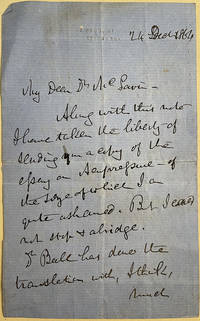 24 Decr 1864
My Dear Dr McGavin -
Along with this note
I have taken the liberty of
sending you a copy of the
essay on Acupressure - of
the size of which I am
quite ashamed. But I could
not stop & abridge.
Dr Ball has done the
translation with, I think,
much